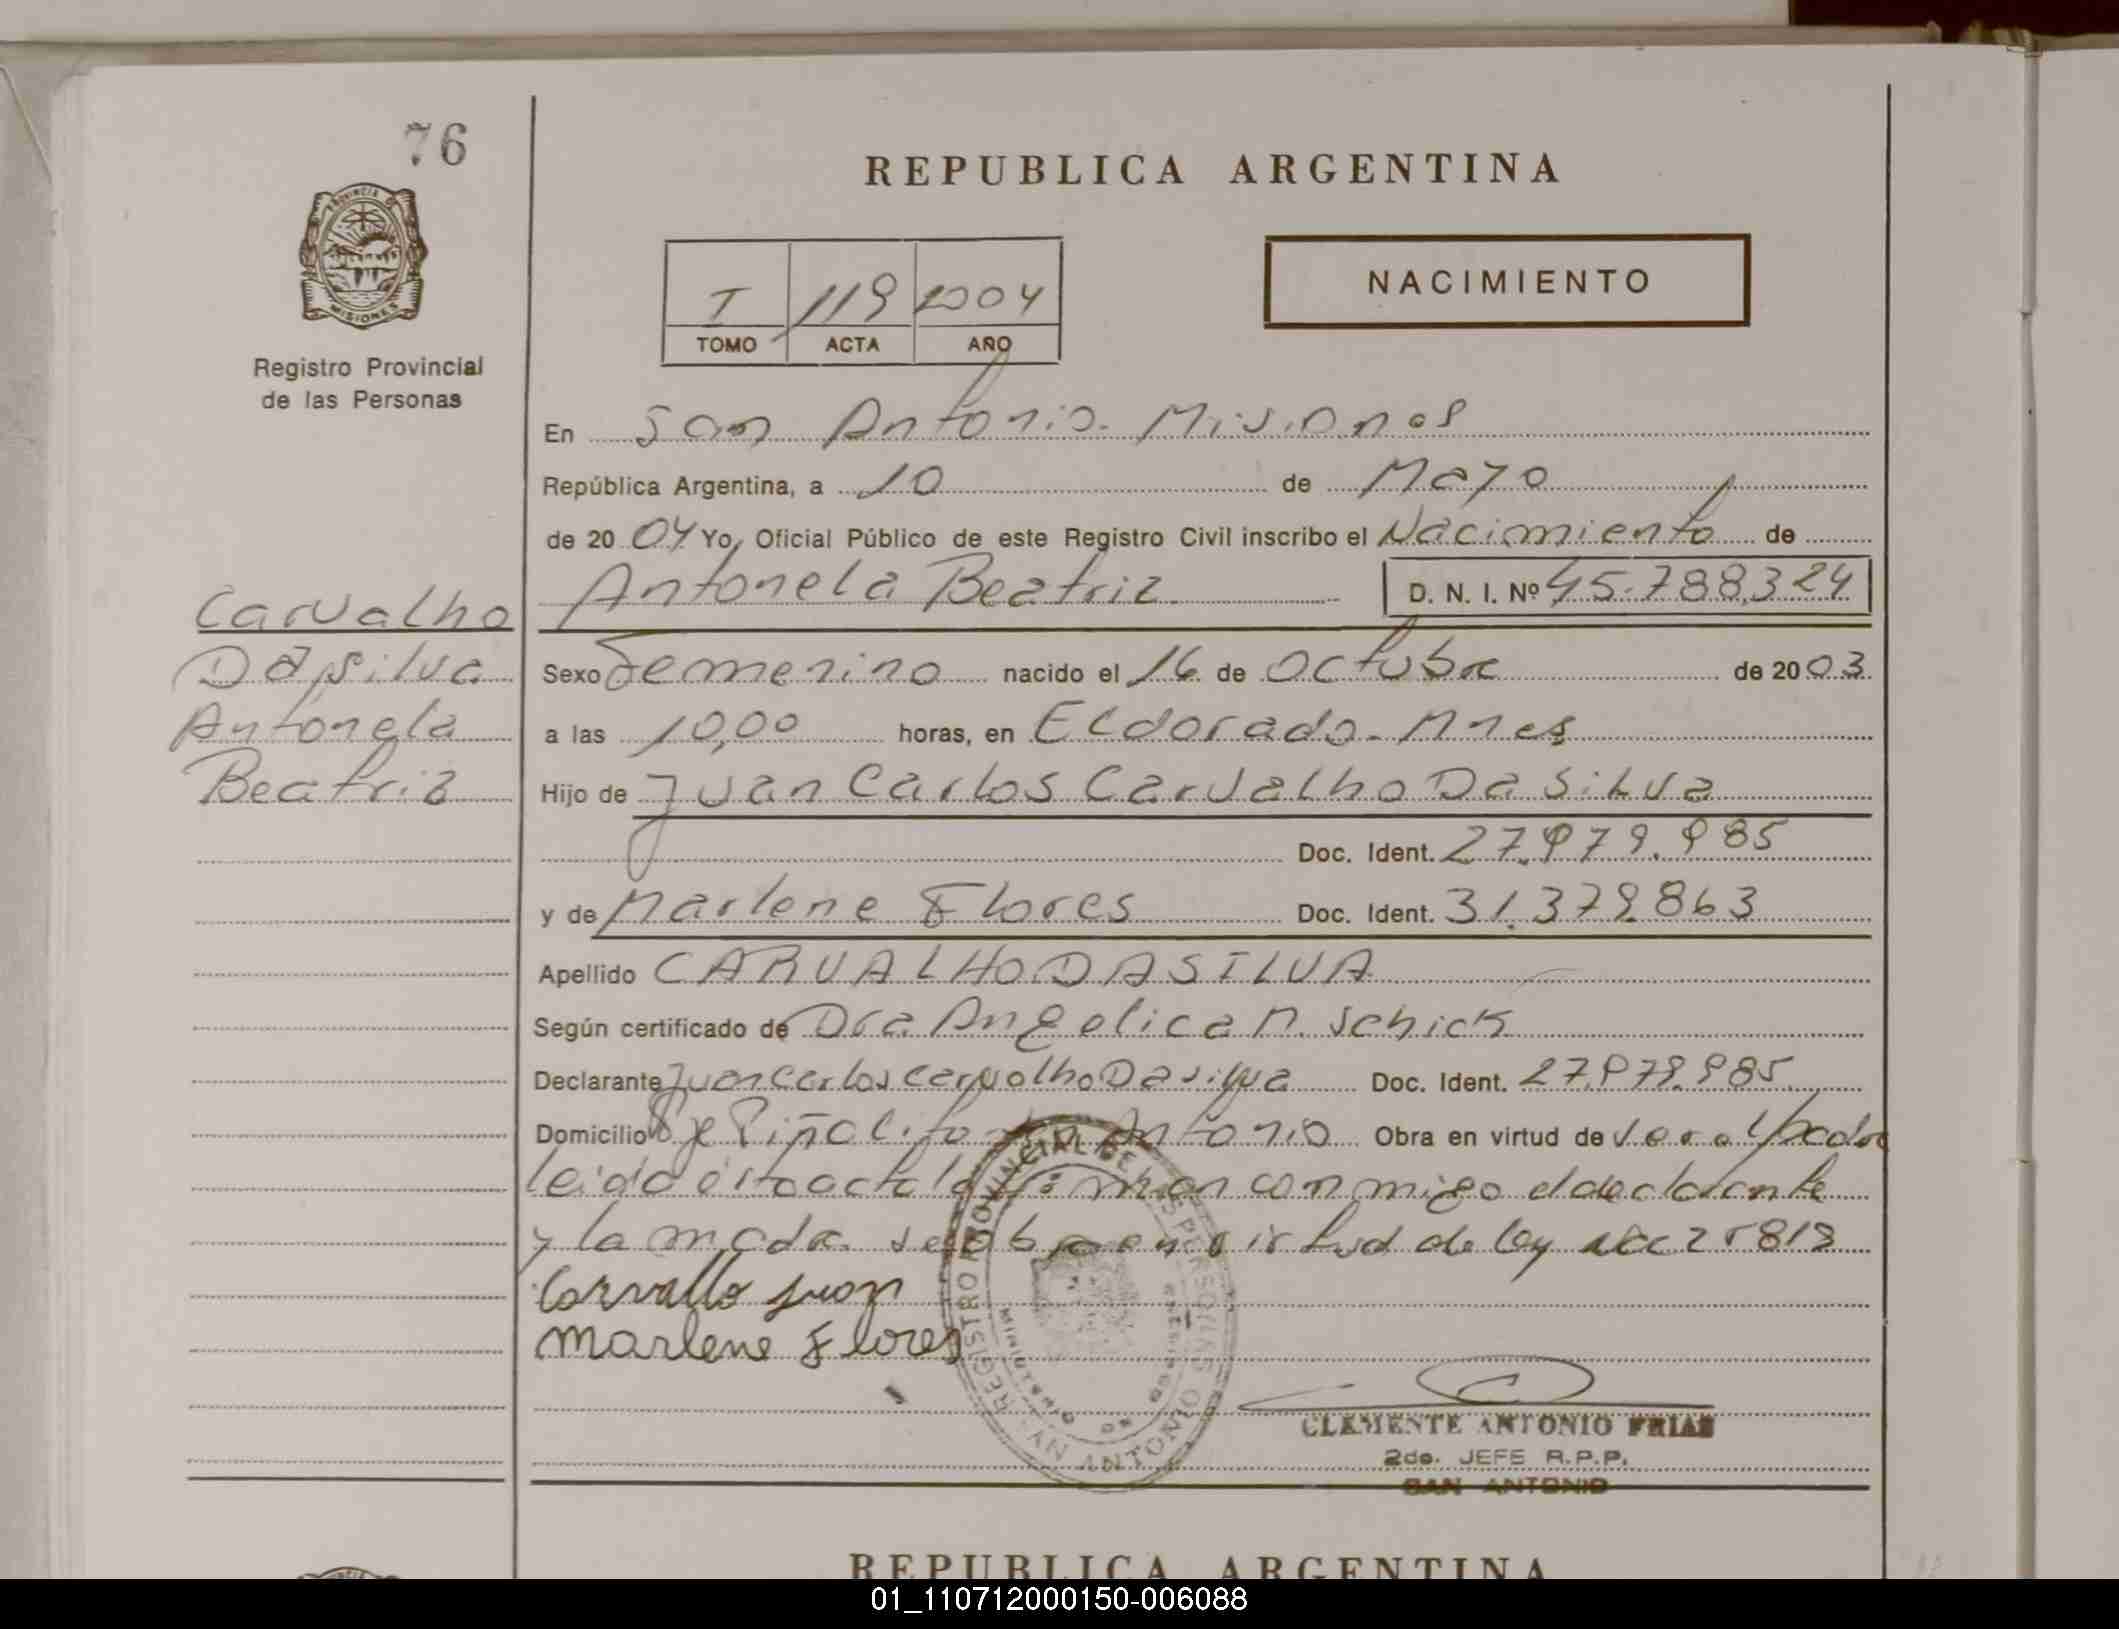 76
REPUBLICA ARGENTINA
PROVINCIA DE
MISIONES
Registro Provincial
de las Personas
NACIMIENTO
I 119 2004
TOMO ACTA AÑO
En San Antonio. Misiones
República Argentina, a 10 de Mayo
de 2004 Yo, Oficial Público de este Registro Civil inscribo el Nacimiento de
Antonela Beatriz D. N. I. Nº 45.788324
Carvalho
Da silva
Antonela
Beatriz
Sexo Femenino nacido el 16 de Octubre de 2003
a las 10,00 horas, en Eldorado. Mnes
Hijo de Juan Carlos Carvalho Da Silva
Doc. Ident. 27.979.985
y de Marlene Flores Doc. Ident. 31.379863
Apellido CARVALHO DA SILVA
Según certificado de Dra Angelica M. Schick
Declarante Juan Carlos Carvalho Da silva Doc. Ident. 27.979.985
Domicilio Pje Piñalito San Antonio Obra en virtud de
leida esta acta la firman conmigo el declarante
y la madre. se en virtud de ley 25818
Carvallo Juan
Marlene Flores
REGISTRO PROVINCIAL DE LAS PERSONAS
MINISTERIO DE GOBIERNO
SAN ANTONIO
CLEMENTE ANTONIO FRIAS
2do. JEFE R.P.P.
SAN ANTONIO
REPUBLICA ARGENTINA
01_110712000150-006088